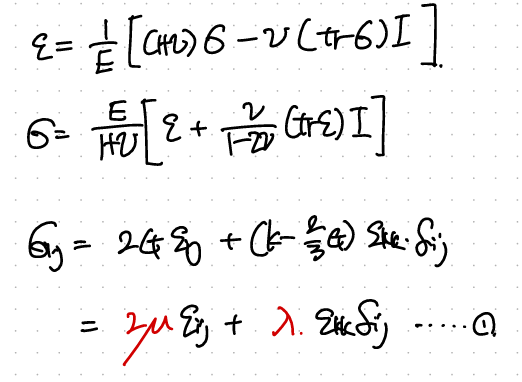 ε = 1/E [(1+ν)σ − ν(tr σ)I].
σ = E/(1+ν) [ε + ν/(1−2ν) (tr ε) I]
σij = 2G εij + (k − 2/3 G) εkk · δij
= 2μ εij + λ. εkk δij ·····①